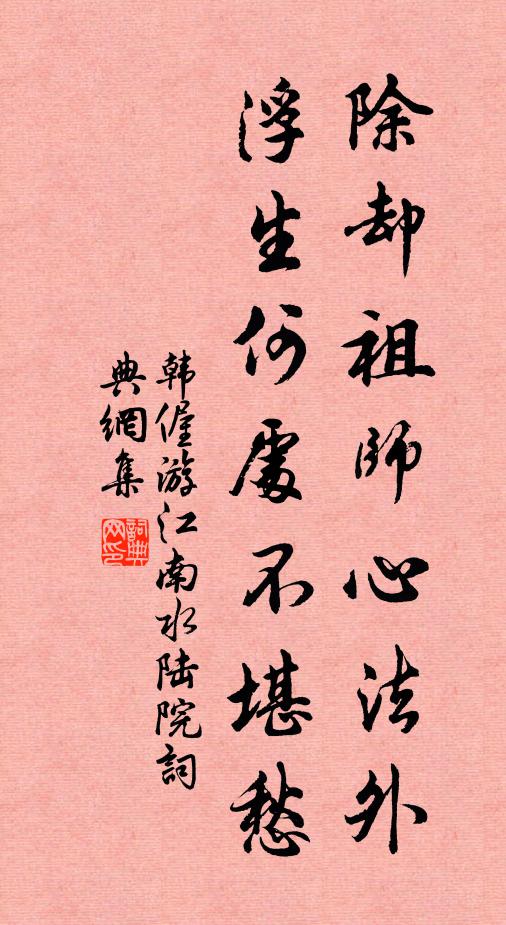 除却祖师心法外
浮生何處不堪愁
韩偓游江南水陆院詞
典網集
詞典
网印